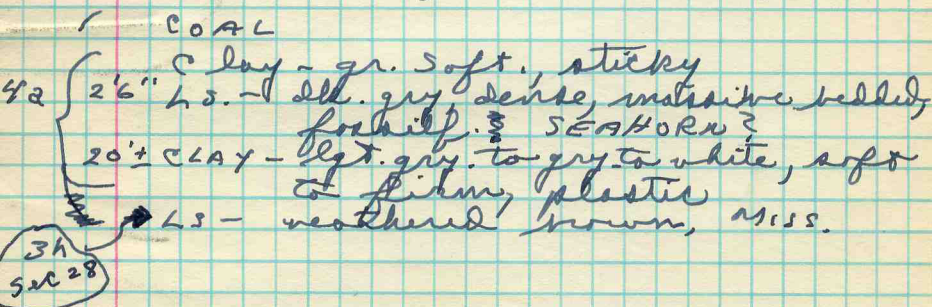 COAL
Clay - gr. soft., sticky
42 2'6" LS. - dk. gry, dense, massive bedded,
fossilf. SEAHORN?
20'± CLAY - lgt. gry. to gry. to white, soft
to firm, plastic
LS - weathered brown, Miss.
3h
Sec 28